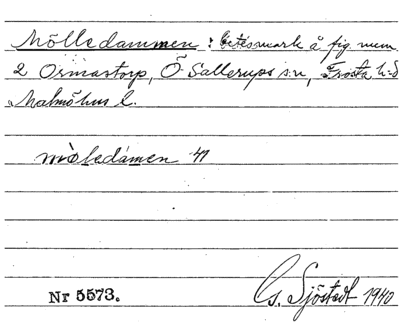 Mölledammen : betesmark å fig. num
2 Ormastorp, Ö Sallerups sn, Frosta h-d
Malmöhus l.
mòledámen 41
Nr 5573.
Gs. Sjöstedt 1940